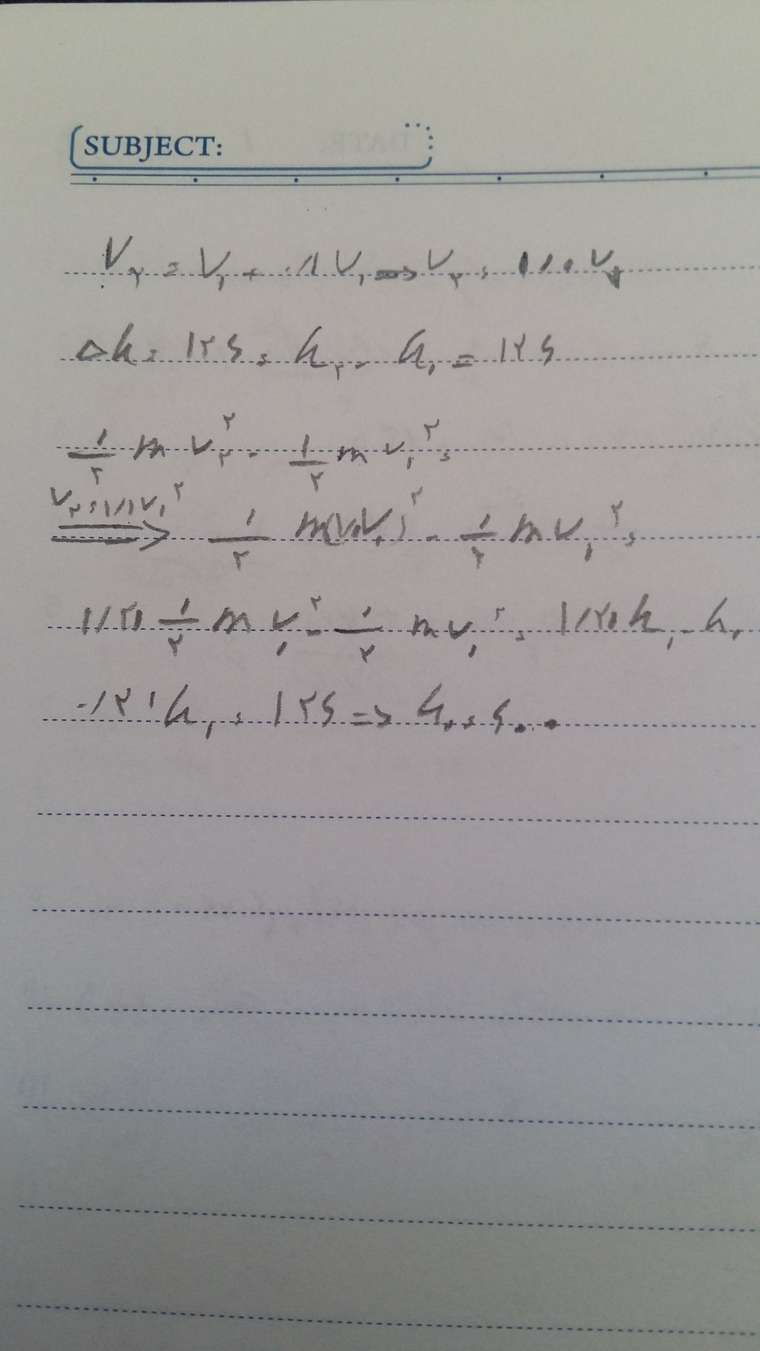 SUBJECT:
V۲ = V۱ + ۰/۱ V۱ => V۲ = ۱/۱۰ V۱
Δk = ۱۲۶ = k۲ - k۱ = ۱۲۶
۱/۲ m v۲^۲ - ۱/۲ m v۱^۲ =
V۲ = ۱/۱ V۱^۲ ⟹ ۱/۲ m(۱/۱V۱)^۲ - ۱/۲ m v۱^۲ =
۱/۲۱ ۱/۲ m v۱^۲ - ۱/۲ m v۱^۲ = ۱/۲۱ k۱ - k۱
۰/۲۱ k۱ = ۱۲۶ => k۱ = ۶۰۰